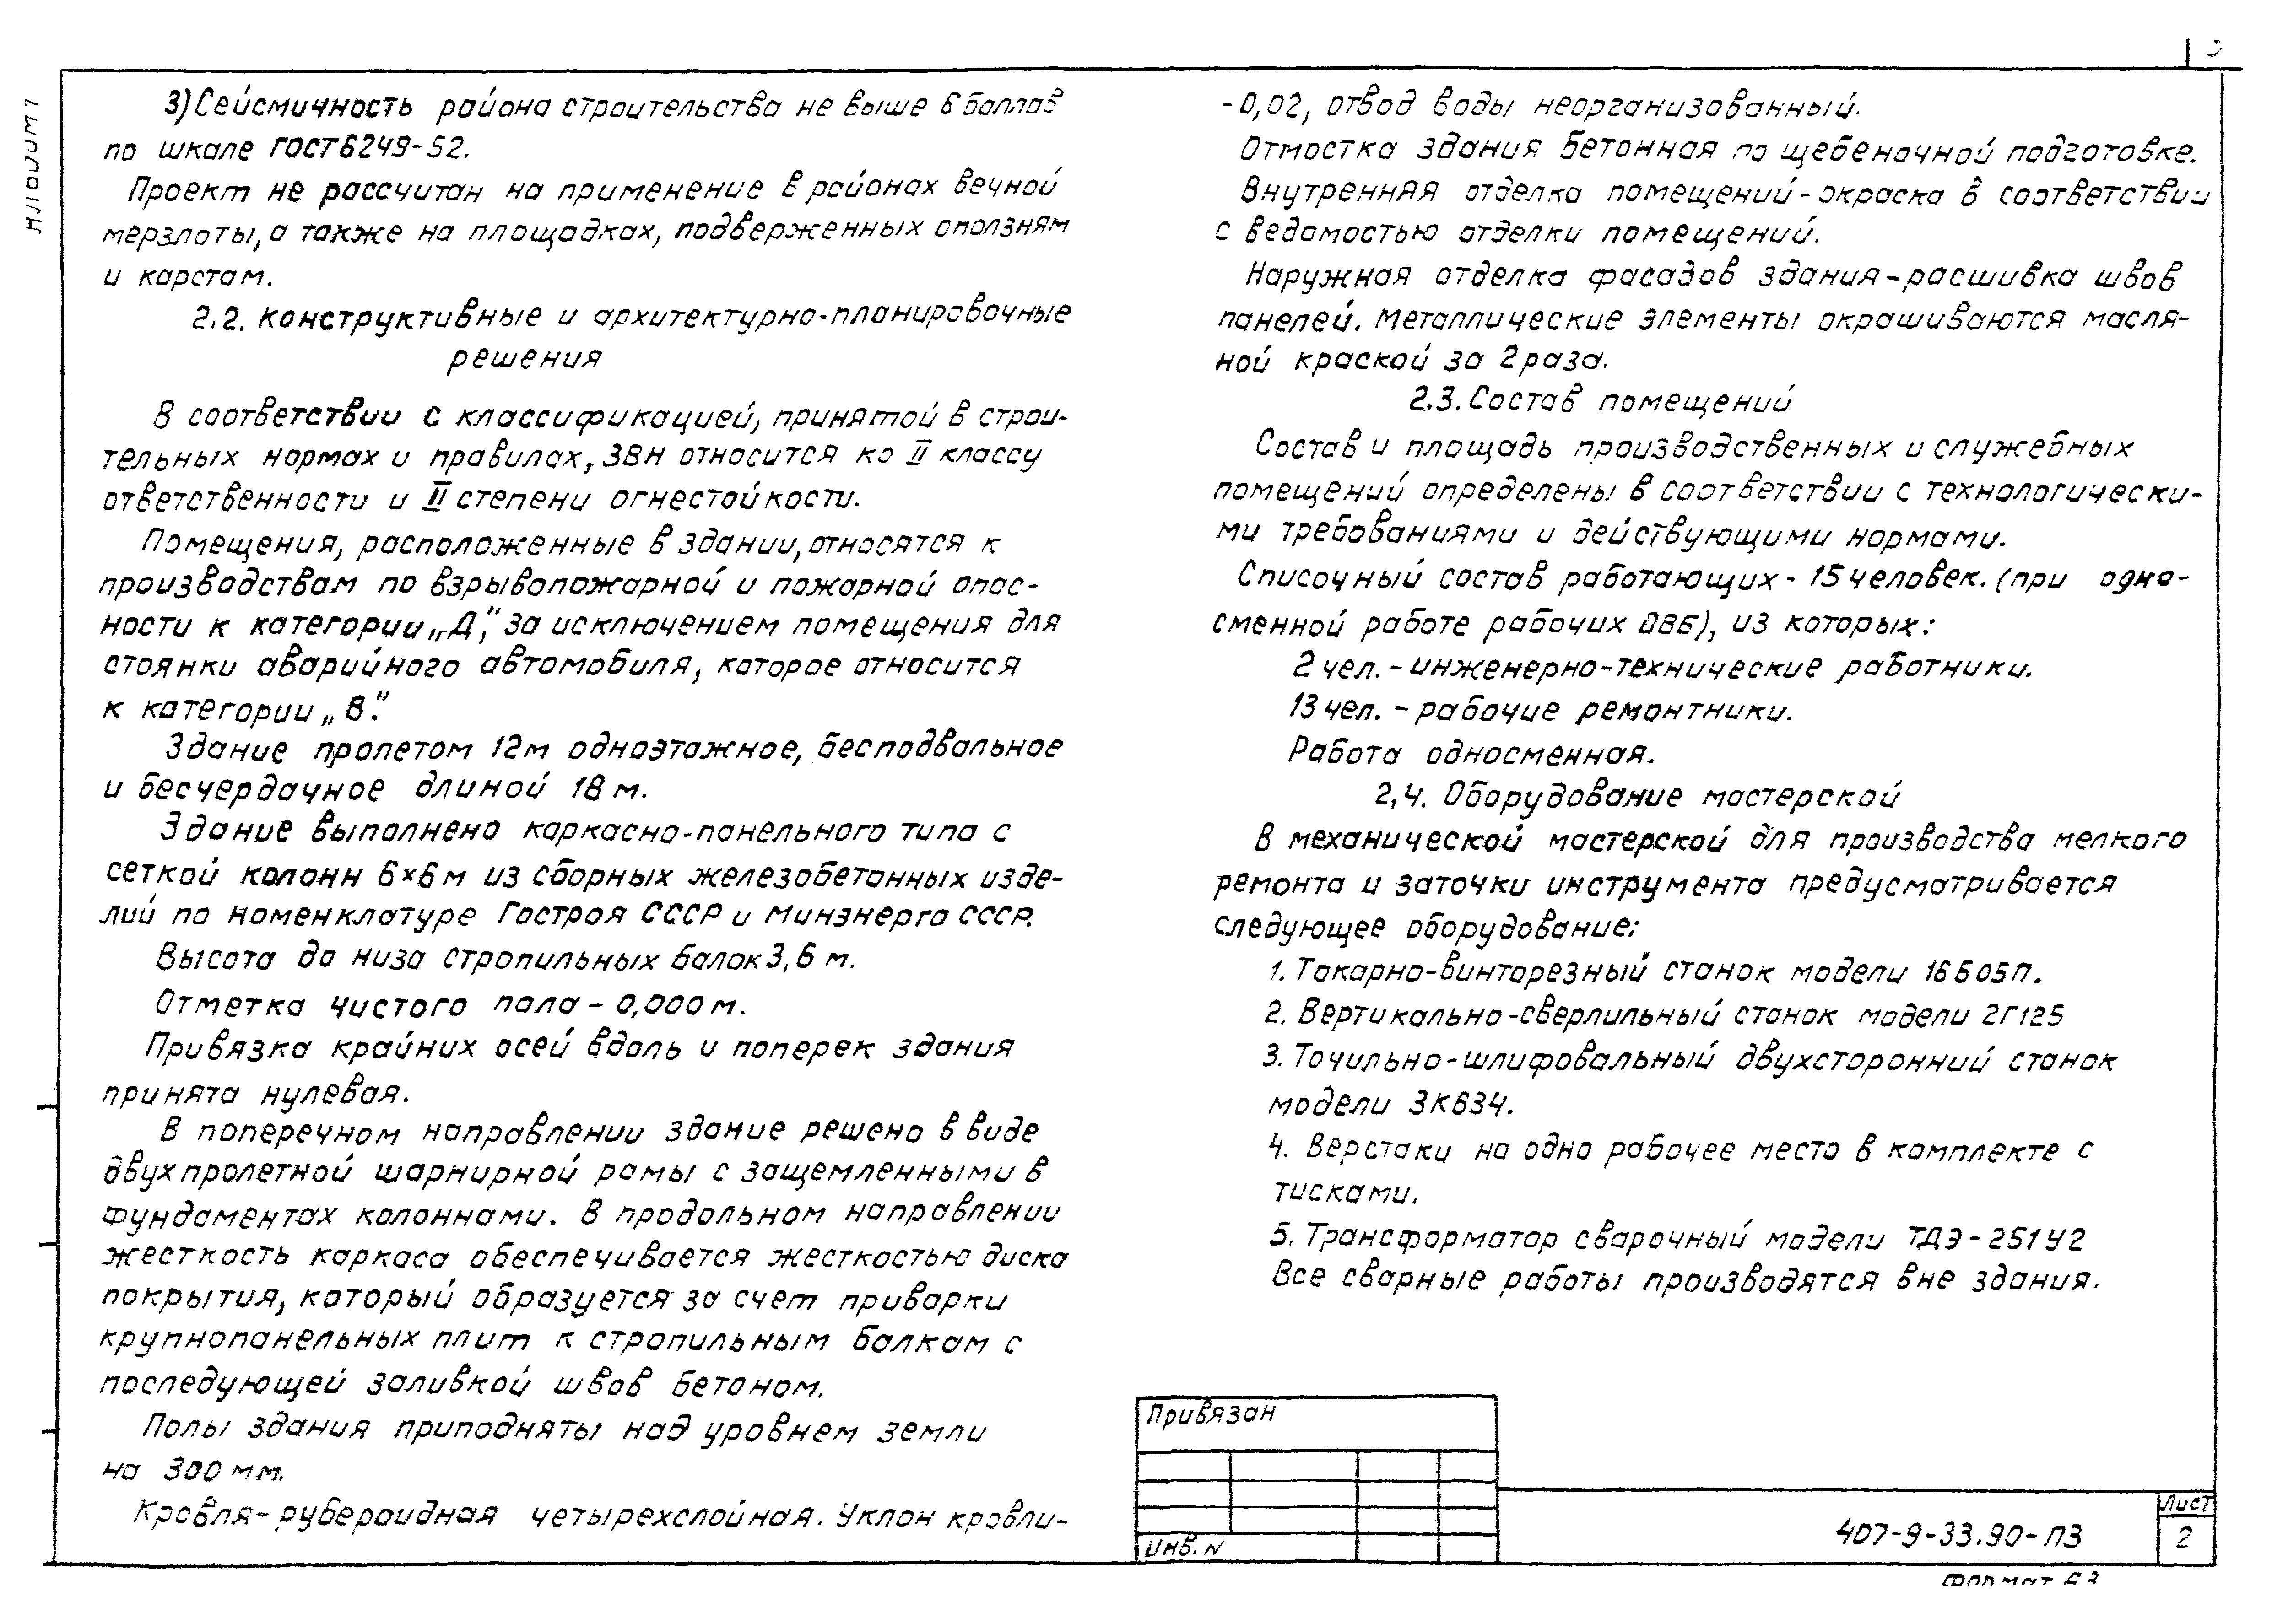 3) Сейсмичность района строительства не выше 6 баллов
по шкале ГОСТ 6249-52.
Проект не рассчитан на применение в районах вечной
мерзлоты, а также на площадках, подверженных оползням
и карстам.
2.2. Конструктивные и архитектурно-планировочные
решения
В соответствии с классификацией, принятой в строи-
тельных нормах и правилах, ЗВН относится ко II классу
ответственности и II степени огнестойкости.
Помещения, расположенные в здании, относятся к
производствам по взрывопожарной и пожарной опас-
ности к категории „Д", за исключением помещения для
стоянки аварийного автомобиля, которое относится
к категории „В".
Здание пролетом 12м одноэтажное, бесподвальное
и бесчердачное длиной 18 м.
Здание выполнено каркасно-панельного типа с
сеткой колонн 6×6 м из сборных железобетонных изде-
лий по номенклатуре Гостроя СССР и Минэнерго СССР.
Высота до низа стропильных балок 3,6 м.
Отметка чистого пола - 0,000 м.
Привязка крайних осей вдоль и поперек здания
принята нулевая.
В поперечном направлении здание решено в виде
двухпролетной шарнирной рамы с защемленными в
фундаментах колоннами. В продольном направлении
жесткость каркаса обеспечивается жесткостью диска
покрытия, который образуется за счет приварки
крупнопанельных плит к стропильным балкам с
последующей заливкой швов бетоном.
Полы здания приподняты над уровнем земли
на 300 мм.
Кровля - рубероидная четырехслойная. Уклон кровли-
-0,02, отвод воды неорганизованный.
Отмостка здания бетонная по щебеночной подготовке.
Внутренняя отделка помещений - окраска в соответствии
с ведомостью отделки помещений.
Наружная отделка фасадов здания - расшивка швов
панелей. Металлические элементы окрашиваются масля-
ной краской за 2 раза.
2.3. Состав помещений
Состав и площадь производственных и служебных
помещений определены в соответствии с технологически-
ми требованиями и действующими нормами.
Списочный состав работающих - 15 человек. (при одно-
сменной работе рабочих ОВБ), из которых:
2 чел. - инженерно-технические работники.
13 чел. - рабочие ремонтники.
Работа односменная.
2,4. Оборудование мастерской
В механической мастерской для производства мелкого
ремонта и заточки инструмента предусматривается
следующее оборудование:
1. Токарно-винторезный станок модели 16Б05П.
2. Вертикально-сверлильный станок модели 2Г125
3. Точильно-шлифовальный двухсторонний станок
модели 3К634.
4. Верстаки на одно рабочее место в комплекте с
тисками.
5. Трансформатор сварочный модели ТДЭ-251У2
Все сварные работы производятся вне здания.
Привязан
Инв. N
407-9-33.90-ПЗ
Лист
2
Формат А3